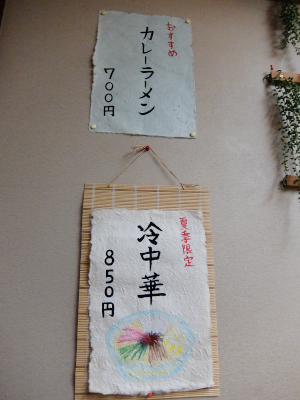 おすすめ
カレーラーメン
700円
夏季限定
冷中華
850円